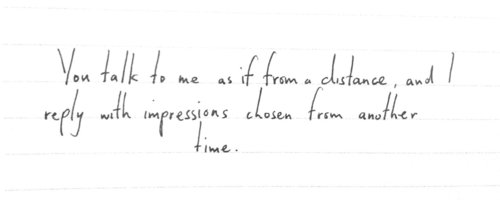 You talk to me as if from a distance, and I
reply with impressions chosen from another
time.